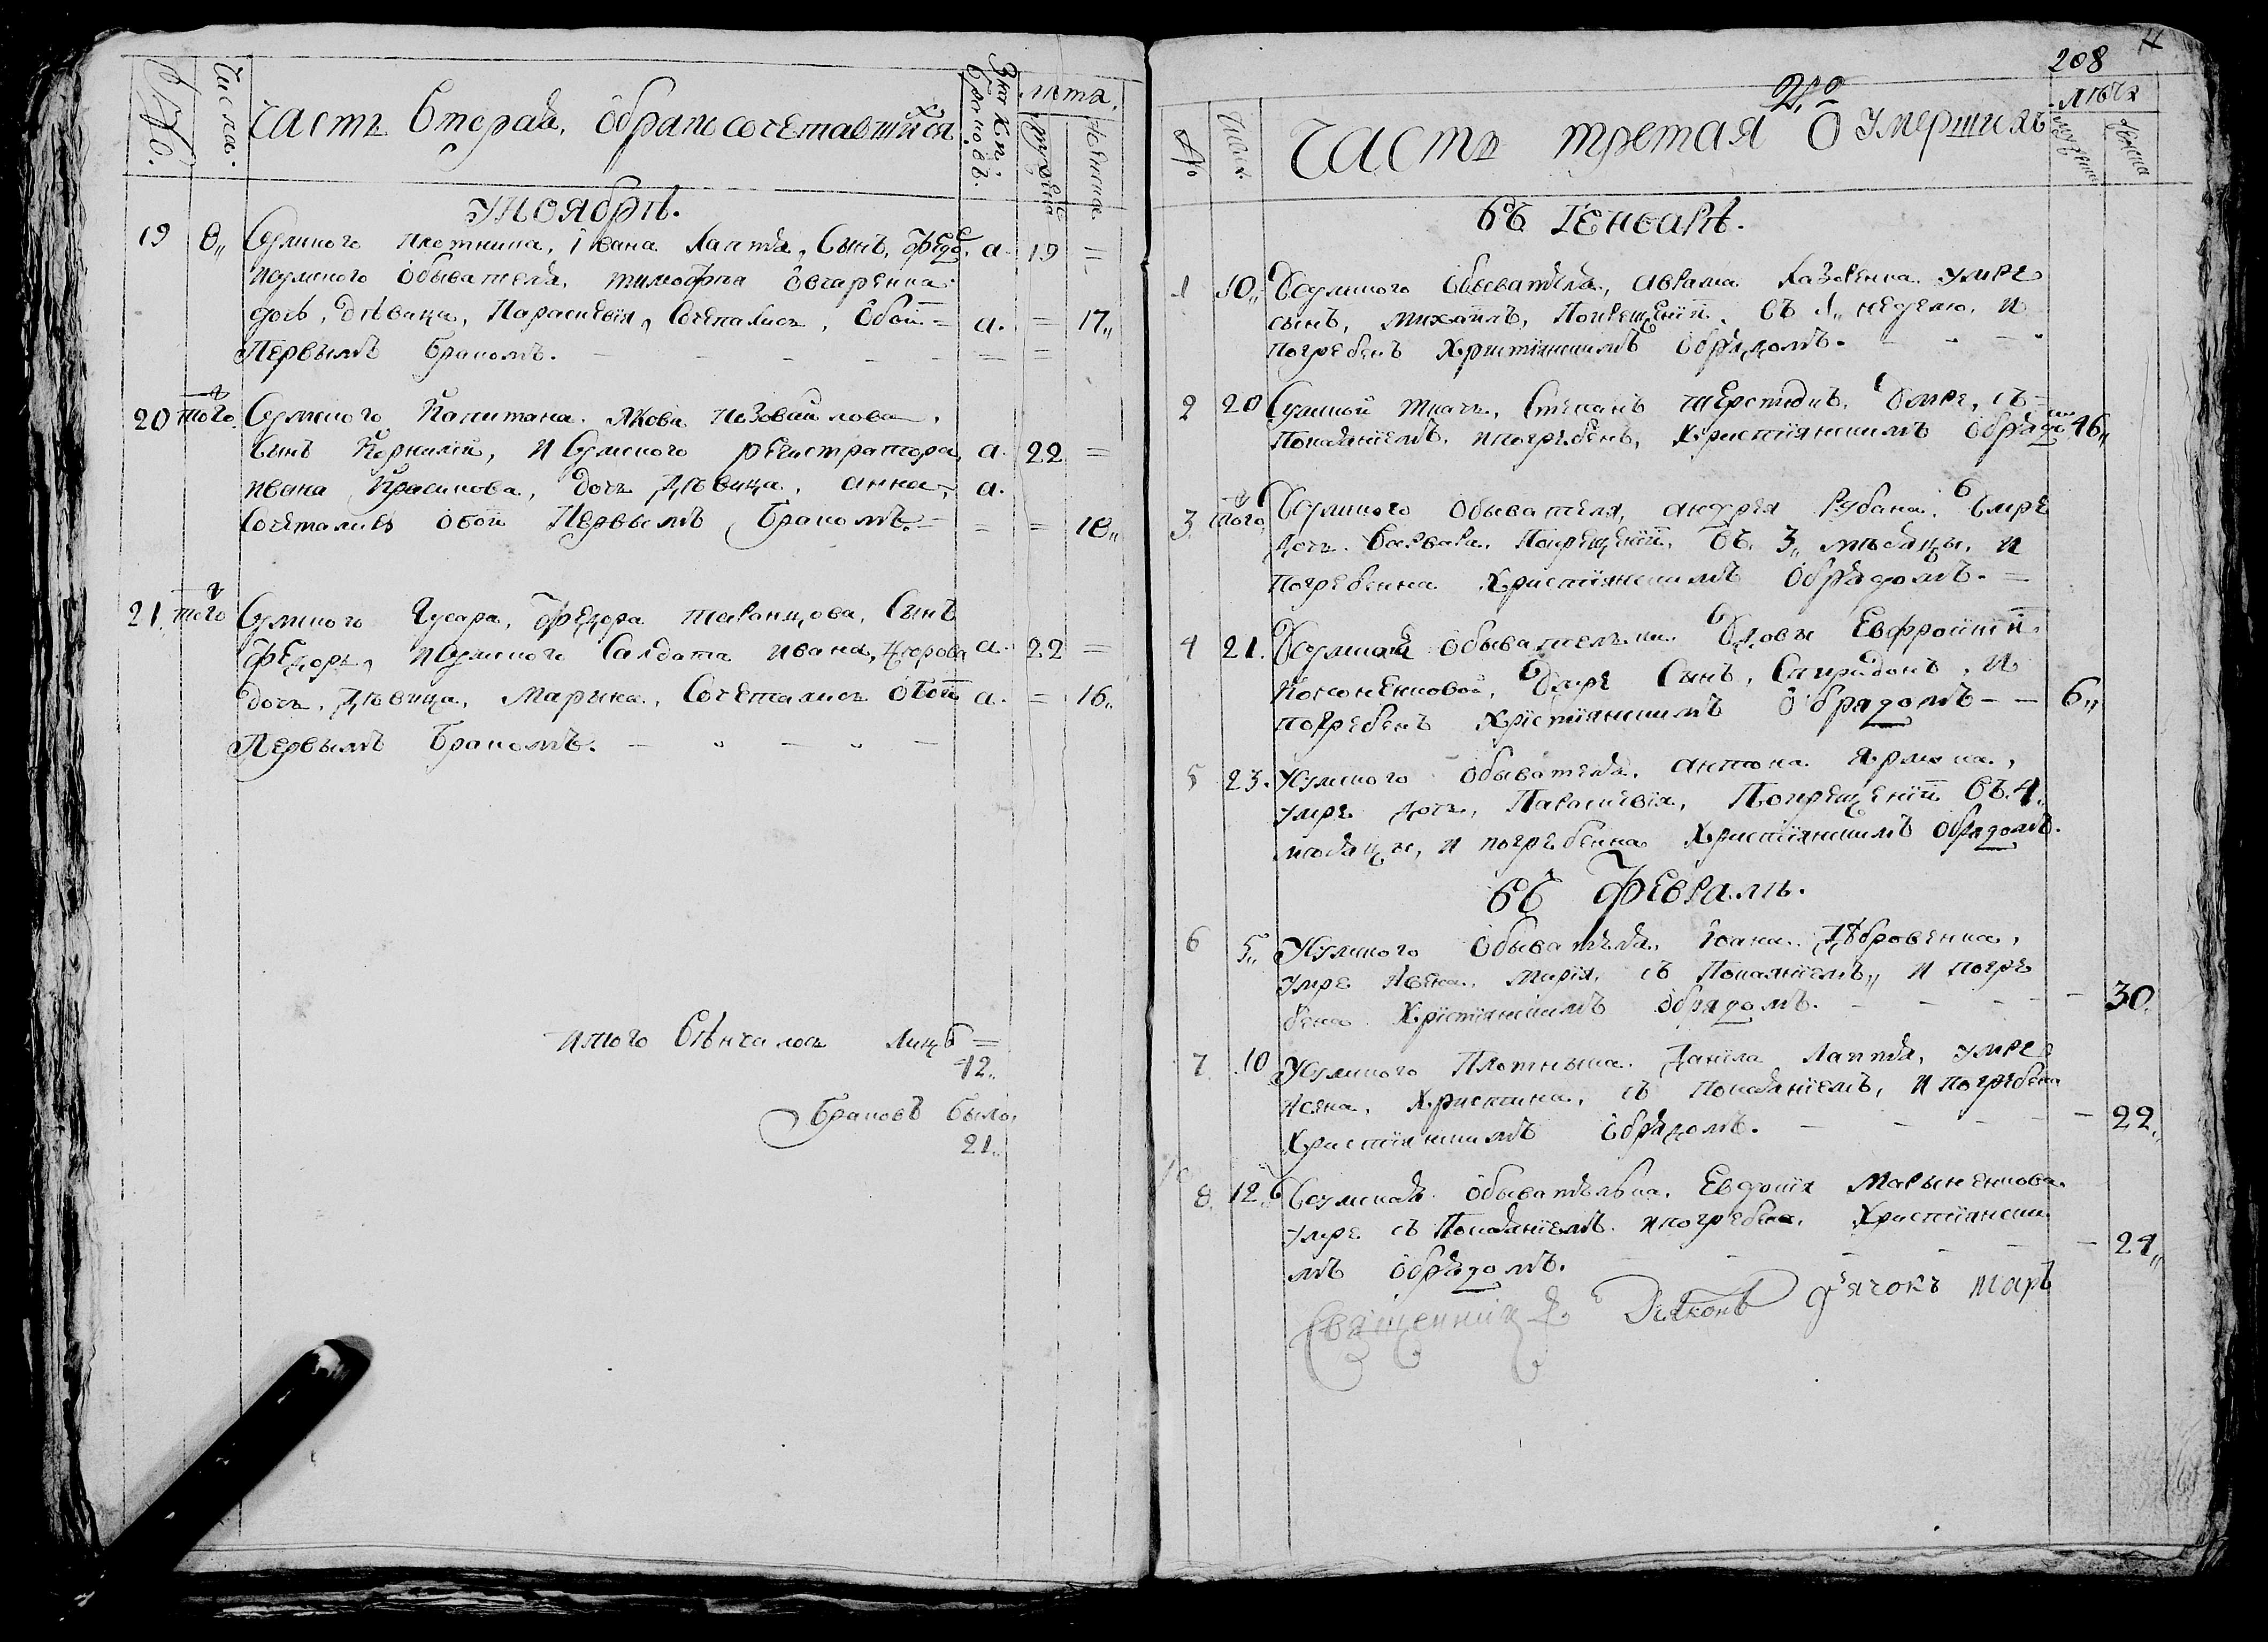 №.
Числа.
Часть вторая, обракосочетавшихся
Знак. п. браковъ.
лета.
мужеска
женска
Уноября.
19 8„ Сумского плотника, Ивана Лаптя, Сынъ, Федо, а. 19 =
исумского обывателя, тимофея Овчаренка
дочь, Девица, Параскевія, Сочеталися, обои = а. = 17„
Первымъ бракомъ.
20 того ч Сумского Капитана Якова
Сынъ Корнилій, и Сумского регистратора а. 22 =
ивана Красикова, дочь Девица, анна, а.
Сочетались обои Первымъ Бракомъ = = 18„
21. того ч Сумского Гусара, Федора таранцова, Сынъ
Федоръ, исумского Салдата ивана, а. 22 =
дочь, девица, Марина, Сочеталися обои а. = 16„
Первымъ Бракомъ.
итого венчалось Лицъ =
42„
Браковъ было,
21„
208
№
Числа.
Часть третая О умершихъ
2го
лѣта
мужеска
женска
въ Генварѣ.
1 10„ Усумского обывателя, аврама Назаренка умре
сынъ, михаилъ, Покрещеніи въ 1„ неделю, и
погребенъ Христіянскимъ обрядомъ.
2 20 Сумской ткачь, Степанъ Шерстюкъ, Умре, съ =
Покаяніемъ, ипогребенъ, Христіянскимъ обрядо 46„
3. того ч Усумского обывателя, андрея Рубана, Умре
дочь Варвара, Покрещеніи, въ 3„ месяцы, и
погребенна Христіянскимъ обрядомъ. =
4 21. Усумской обывательки Вдовы Евфросиніи
Кононенковой, Умре Сынъ, Спиридонъ, и
погребенъ Хрістіянскимъ обрядомъ — — 6„
5 23. Усумского обывателя, антона Ярмака,
умре дочь, Параскевія, Покрещеніи въ 4„
месяцы, и погребенна Христіянскимъ обрядомъ.
въ Февралѣ.
6 5„ Усумского обывателя, Іоана Дубровенка,
умре жена, Марія, съ Покаяніемъ, и погре
бена Хрістіянскимъ обрядомъ. — 30.
7. 10 Усумского Плотника Даніла Лаптя, умре
жена, Христина, съ Покаяніемъ, и погребена
Христіянскимъ обрядомъ. — 22„
8. 12„ Сумская обывателька, Евдокія Мариненкова
умре съ Покаяніемъ ипогребена, Христіянски
мъ обрядомъ. — 24„
Священникъ Діяконъ Дьячокъ Мар